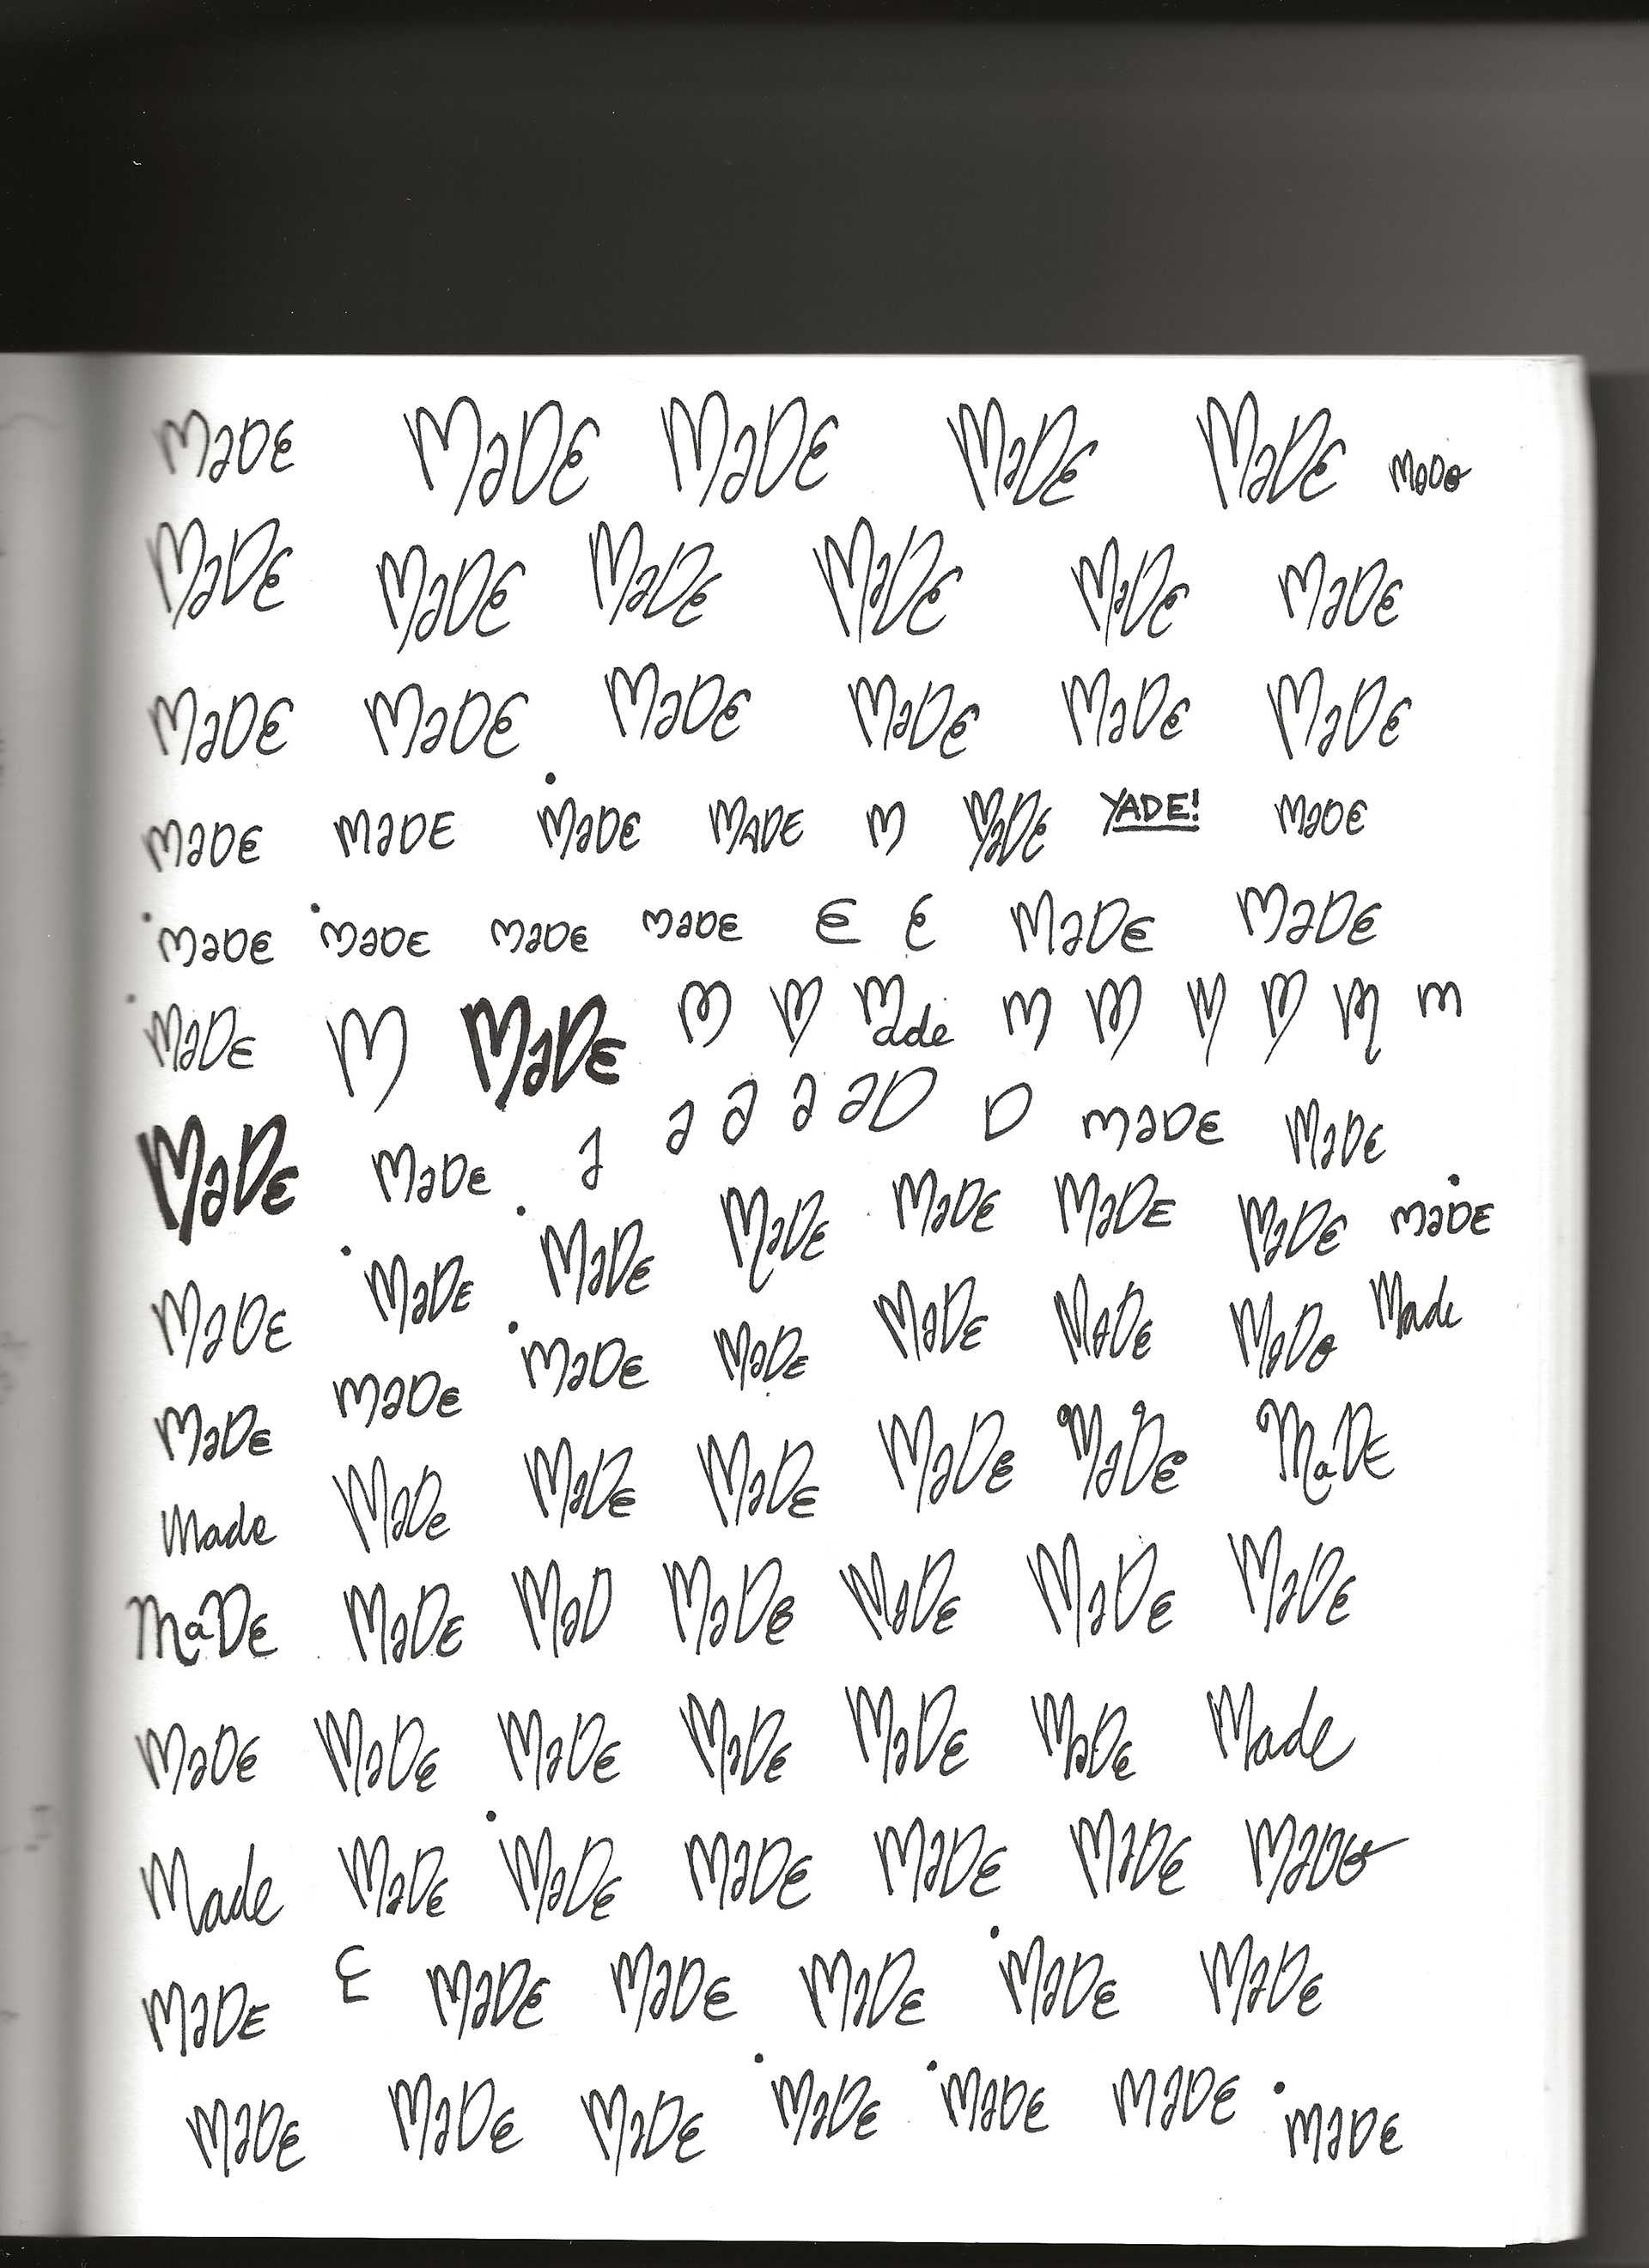 MaDE MaDE MaDE MaDE MaDE MaDe
MaDE MaDE MaDE MaDE MaDE MaDE
MaDE MaDE MaDE MaDE MaDE MaDE
MaDE MaDE MaDE MADE M MaDE YADE! MaDE
MaDE MaDE MaDE MaDE E E MaDE MaDE
MaDE M MaDE M M Made M M M M M m
MaDE MaDE a a a a aD D MaDE MaDE
MaDE MaDE MaDE MaDE MaDE MaDE MaDE MaDE
MaDE MaDE MaDE MaDE MaDE MADE MaDe Made
Made MaDe MaDE MaDE MaDE MaDE MaDE
MaDE MaDE MaD MaDE MaDE MaDE MaDE
MaDE MaDE MaDE MaDE MaDE MaDE Made
Made MaDE MaDE MaDE MaDE MaDE MaDe
MaDE E MaDE MaDE MaDE MaDE MaDE
MaDE MaDE MaDE MaDE MaDE MaDE MaDE